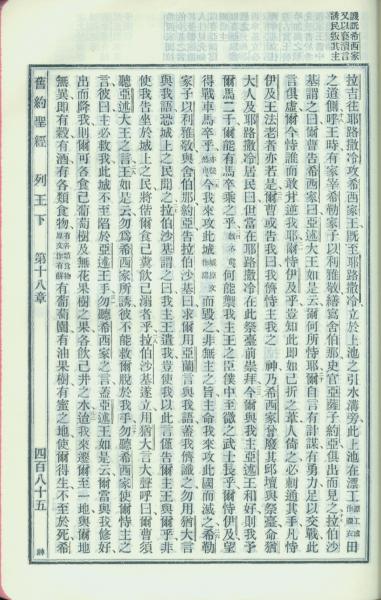 譏誚希西家
又以褻瀆言
誘民叛其主
拉吉往耶路撒冷攻希西家王既至耶路撒冷立於上池之引水溝旁此上池在漂工漂工或作漂衣田
之道側呼王時有家宰希勒家子以利雅敬繕寫舍伯那史官亞薩子約亞俱出而見之拉伯沙
基謂之曰爾曹告希西家曰亞述大王如是云爾何所恃耶爾自言有計謀有勇力足以交戰此
言俱虛爾今恃誰而敢背逆我耶爾恃伊及乎豈知此即如已折之葦人倚之必刺通其手凡恃
伊及王法老者亦若是爾曹或告我曰我儕恃主我之 神乃希西家曾廢其邱壇與祭臺命猶
大人及耶路撒冷居民曰但當在耶路撒冷在此祭臺前崇拜今爾與我主亞述王和好則我予
爾馬二千爾能有馬卒乘之乎 何能禦我主王之臣僕中至微之武士長乎爾恃伊及望
得戰車馬卒乎 今我來攻此城 而毀之非無主之旨主命我來攻此國而滅之希勒
家子以利雅敬與舍伯那約亞告拉伯沙基曰求爾用亞蘭言與我語蓋我儕識之勿用猶大言
與我語恐城上之民聞之拉伯沙基謂之曰我主王遣我豈使我以此言僅告爾主與爾乎非
使我告坐於城上之民將偕爾食己糞飲己溺者乎拉伯沙基遂立用猶大言大聲呼曰爾曹須
聽亞述大王之言王如是云勿為希西家所誘彼不能救爾脫於我手勿聽希西家使爾恃主之
言彼曰主必救我此城不至陷於亞述王手勿聽希西家之言蓋亞述王如是云爾當與我修好
出而降我則爾可各食己葡萄樹及無花果樹之果各飲己井之水迨我來遷爾至一地與爾地
無異即有穀有酒有各類食物 有葡萄園有油果樹有蜜之地使爾得生不至於死希
舊約聖經 列王下 第十八章 四百八十五